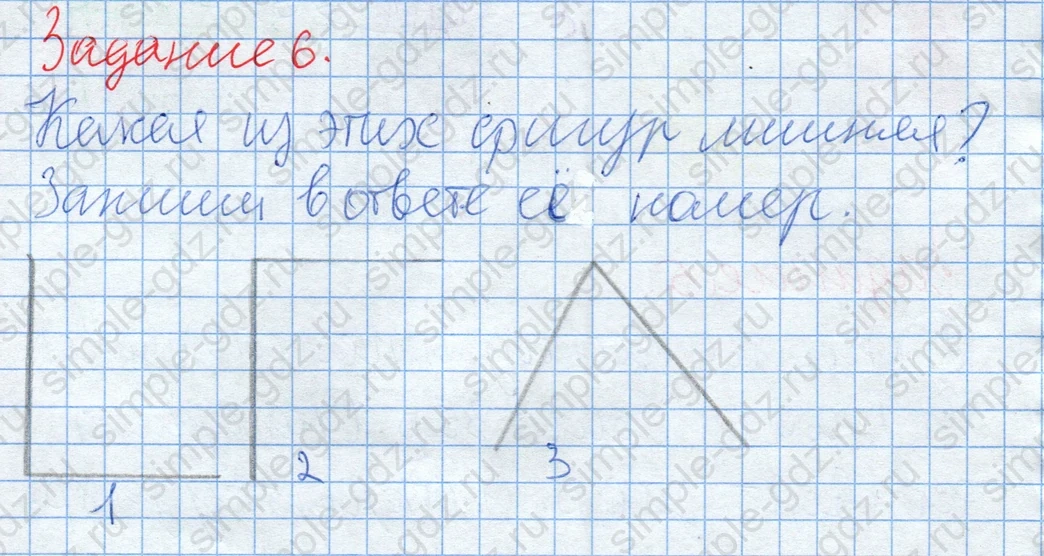 Задание 6.
Какая из этих фигур лишняя?
Запиши в ответе её номер.
1
2
3
simple-gdz.ru